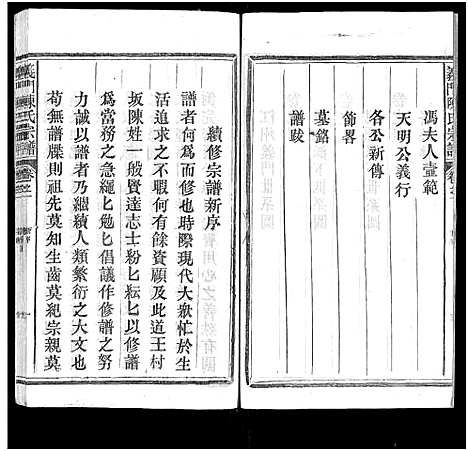 義門陳氏宗譜
馮夫人壼範
天明公義行
各公新傳
節畧
墓銘
譜跋
續修宗譜新序
譜者何為而修也時際現代大眾忙於生
活追求之不暇何有餘資顧及此道王村
坂陳姓一般賢達志士紛匕紜匕以修譜
為當務之急繩匕勉匕倡議作修譜之努
力誠以譜者乃繼續人類繁衍之大文也
苟無譜牒則祖先莫知生齒莫紀宗親莫
義門陳氏宗譜